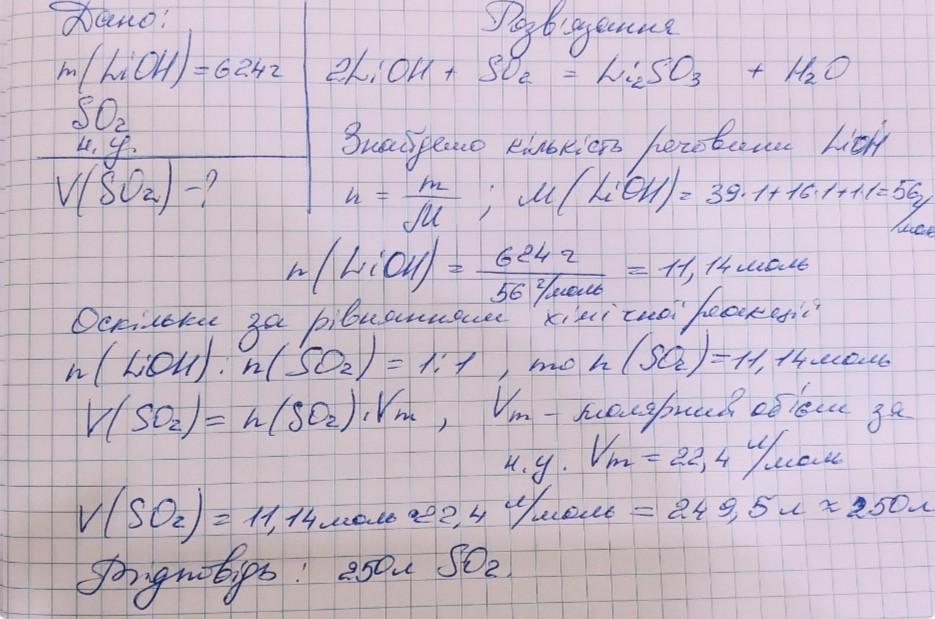 Дано:
m(LiOH)=624г
SO₂
н.у.
V(SO₂)-?
Розв'язання
2LiOH + SO₂ = Li₂SO₃ + H₂O
Знайдемо кількість речовини LiOH
n = m/M ; M(LiOH)=39·1+16·1+1·1=56г/моль
n(LiOH) = 624г/56г/моль = 11,14моль
Оскільки за рівнянням хімічної реакції
n(LiOH):n(SO₂)=1:1 , то n(SO₂)=11,14моль
V(SO₂)=n(SO₂)·Vm , Vm – молярний об'єм за
н.у. Vm=22,4 л/моль
V(SO₂)=11,14моль·22,4 л/моль = 249,5л ≈ 250л
Відповідь: 250л SO₂.